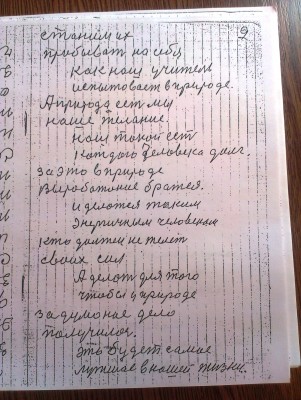 9
станим их
пробыват на себя
Как наш учитель
испытовает в природе.
А природа ест мы
наше желание.
Наш такой ест
Каждого человека долг.
За это в природе
Выроботание братся.
и делатся таким
Энергичным человеком
Кто должен не телѣт
своих сил
А делат для того
чтобы у природе
задуманое дело
получилос.
Это будет самое
лутшае в нашей жизни.